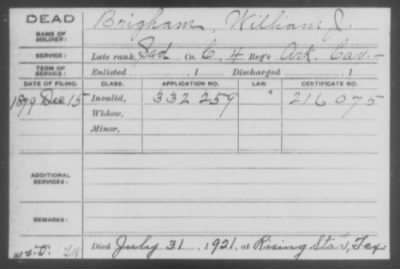 DEAD
NAME OF SOLDIER: Brigham, William J.
SERVICE: Late rank, Sad Co. C, 4 Reg't Ark. Cav.
TERM OF SERVICE: Enlisted , 1 Discharged , 1
DATE OF FILING. CLASS. APPLICATION NO. LAW. CERTIFICATE NO.
1879 Dec 15 Invalid, 332 259 216 075
Widow,
Minor,
ADDITIONAL SERVICES:
REMARKS:
Died July 31, 1921, at Rising Star, Tex